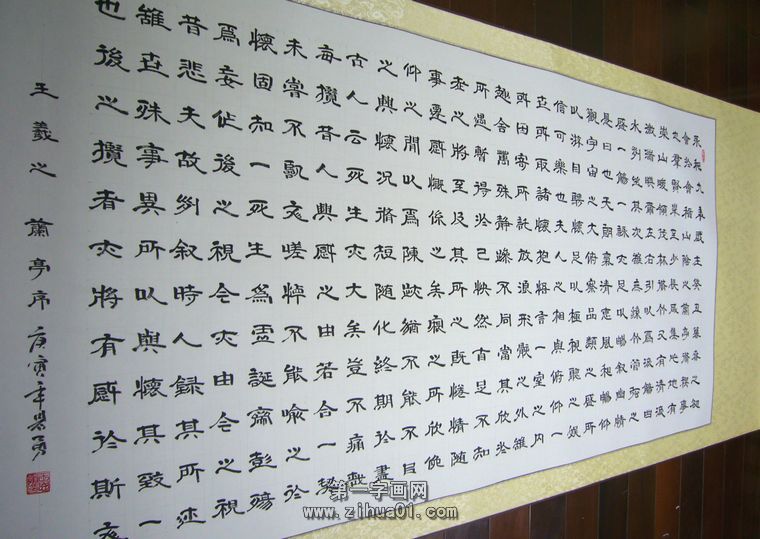 永和九年歲在癸丑暮春之初
會于會稽山陰之蘭亭脩禊事
也群賢畢至少長咸集此地有
崇山峻領茂林脩竹又有清流
激湍映帶左右引以爲流觴曲
水列坐其次雖無絲竹管弦之
盛一觴一詠亦足以暢叙幽情
是日也天朗氣清惠風和暢仰
觀宇宙之大俯察品類之盛所
以游目騁懷足以極視聽之娛
信可樂也夫人之相與俯仰一
世或取諸懷抱悟言一室之內
或因寄所託放浪形骸之外雖
趣舍萬殊靜躁不同當其欣於
所遇暫得於己快然自足不知
老之將至及其所之既惓情隨
事遷感慨係之矣向之所欣俛
仰之閒以爲陳跡猶不能不以
之興懷況脩短隨化終期於盡
古人云死生亦大矣豈不痛哉
每攬昔人興感之由若合一契
未嘗不臨文嗟悼不能喻之於
懷固知一死生爲虛誕齊彭殤
爲妄作後之視今亦由今之視
昔悲夫故列叙時人錄其所述
雖世殊事異所以興懷其致一
也後之攬者亦將有感於斯文
王羲之 蘭亭序 庚寅年昊勇
第一字画网
www.zihua01.com